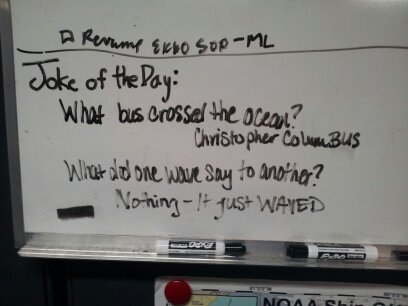 □ Revamp EK60 SOP - ML
Joke of the Day:
What bus crossed the ocean?
Christopher ColumBUS
What did one wave say to another?
Nothing - It just WAVED
EXPO
EXPO
NOAA Ship